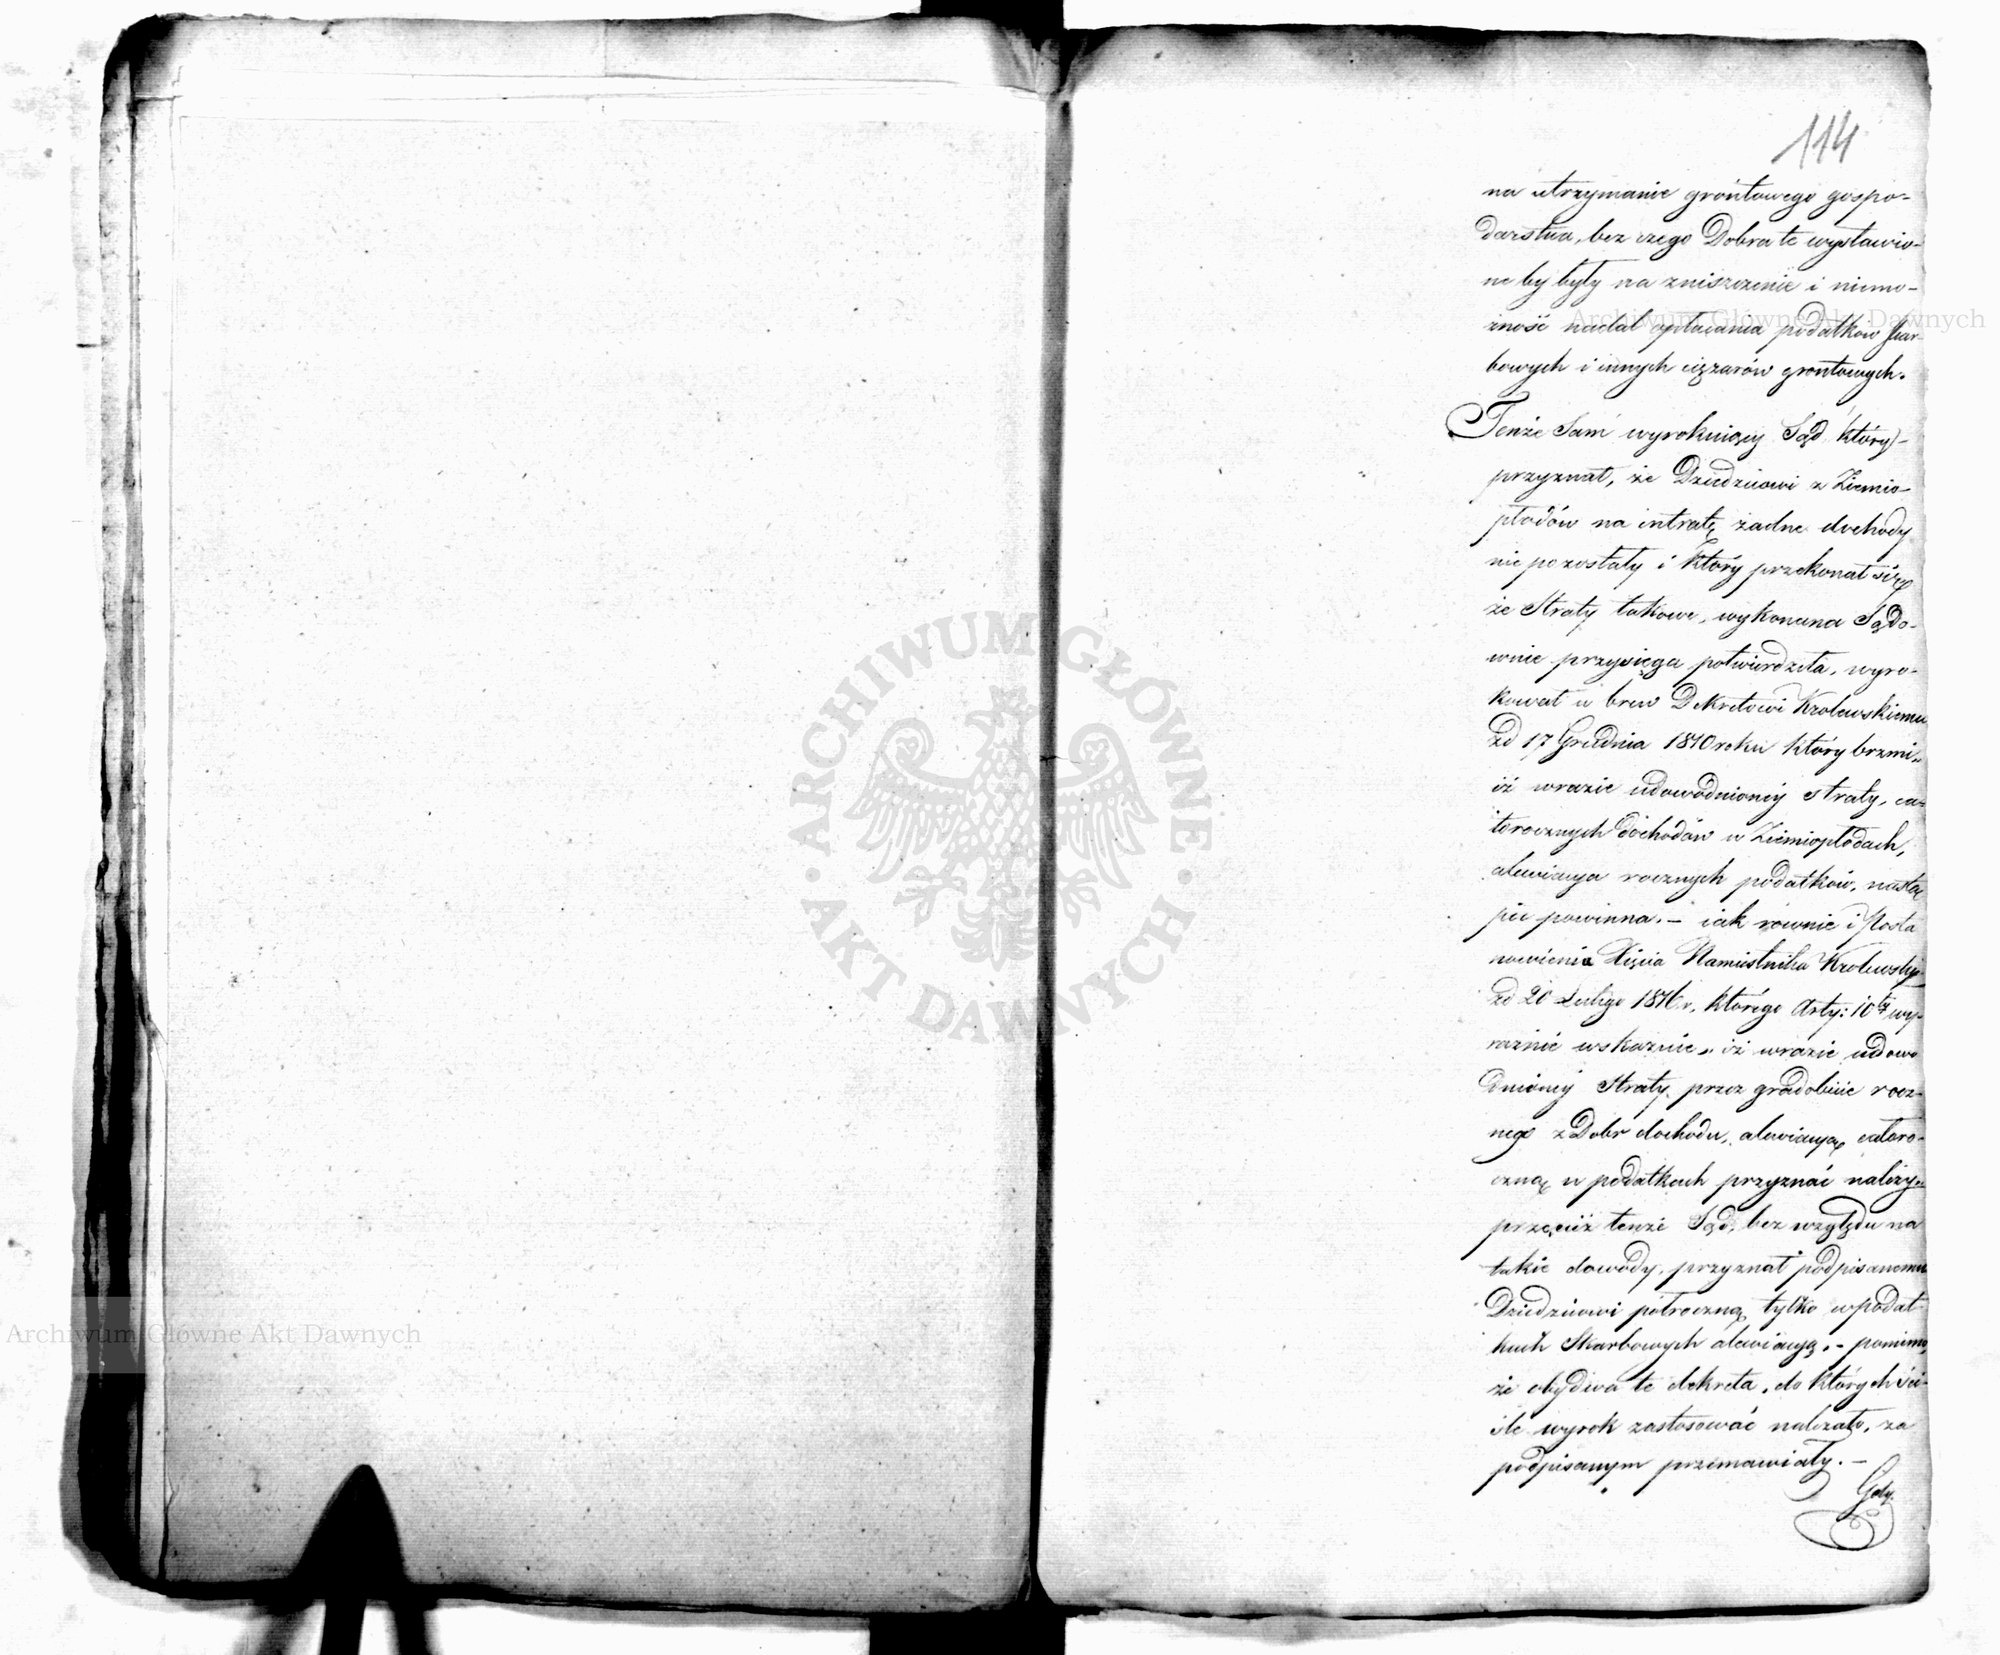 114
na utrzymanie grontowego gospo-
darstwa, bez czego Dobra te wystawio-
ne by były na zniszczenie i niemo-
żność nadal opłacania podatków skar-
bowych i innych ciężarów grontowych.
Tenże Sam wyrokuiący Sąd który
przyznał, że Dziedzicowi z Ziemio-
płodów na intratę żadne dochody
nie pozostały i który przekonał się
że Straty takowe, wykonana Sądo-
wnie przysięga potwierdziła, wyro-
kował w brew Dekretowi Krolewskiemu
zd 17 Grudnia 1810 roku który brzmi„
iż wrazie udowodnioney straty, ca-
łorocznych dochodów w Ziemiopłodach,
alewiacya rocznych podatków, nastą
pić powinna. – iak rownie i Posta
nowienia Xięcia Namiestnika Krolewsky
zd 20 Lutego 1816 r. którego Arty: 10ty wy-
raźnie wskazuie„ iż wrazie udowo
dnioney Straty, przez gradobicie rocz-
nego z Dobr dochodu, alewiacyę całoro-
czną w podatkach przyznać należy„
przecież tenże Sąd, bez względu na
takie dowody, przyznał podpisanemu
Dziedzicowi połroczną tylko w podat
kach Skarbowych alewiacyą. – pomimo,
że obydwa te dekreta, do których ści-
śle wyrok zastosować należało, za
podpisanym przemawiały. –
Gdy
ARCHIWUM GŁÓWNE
AKT DAWNYCH
Archiwum Główne Akt Dawnych
Archiwum Główne Akt Dawnych